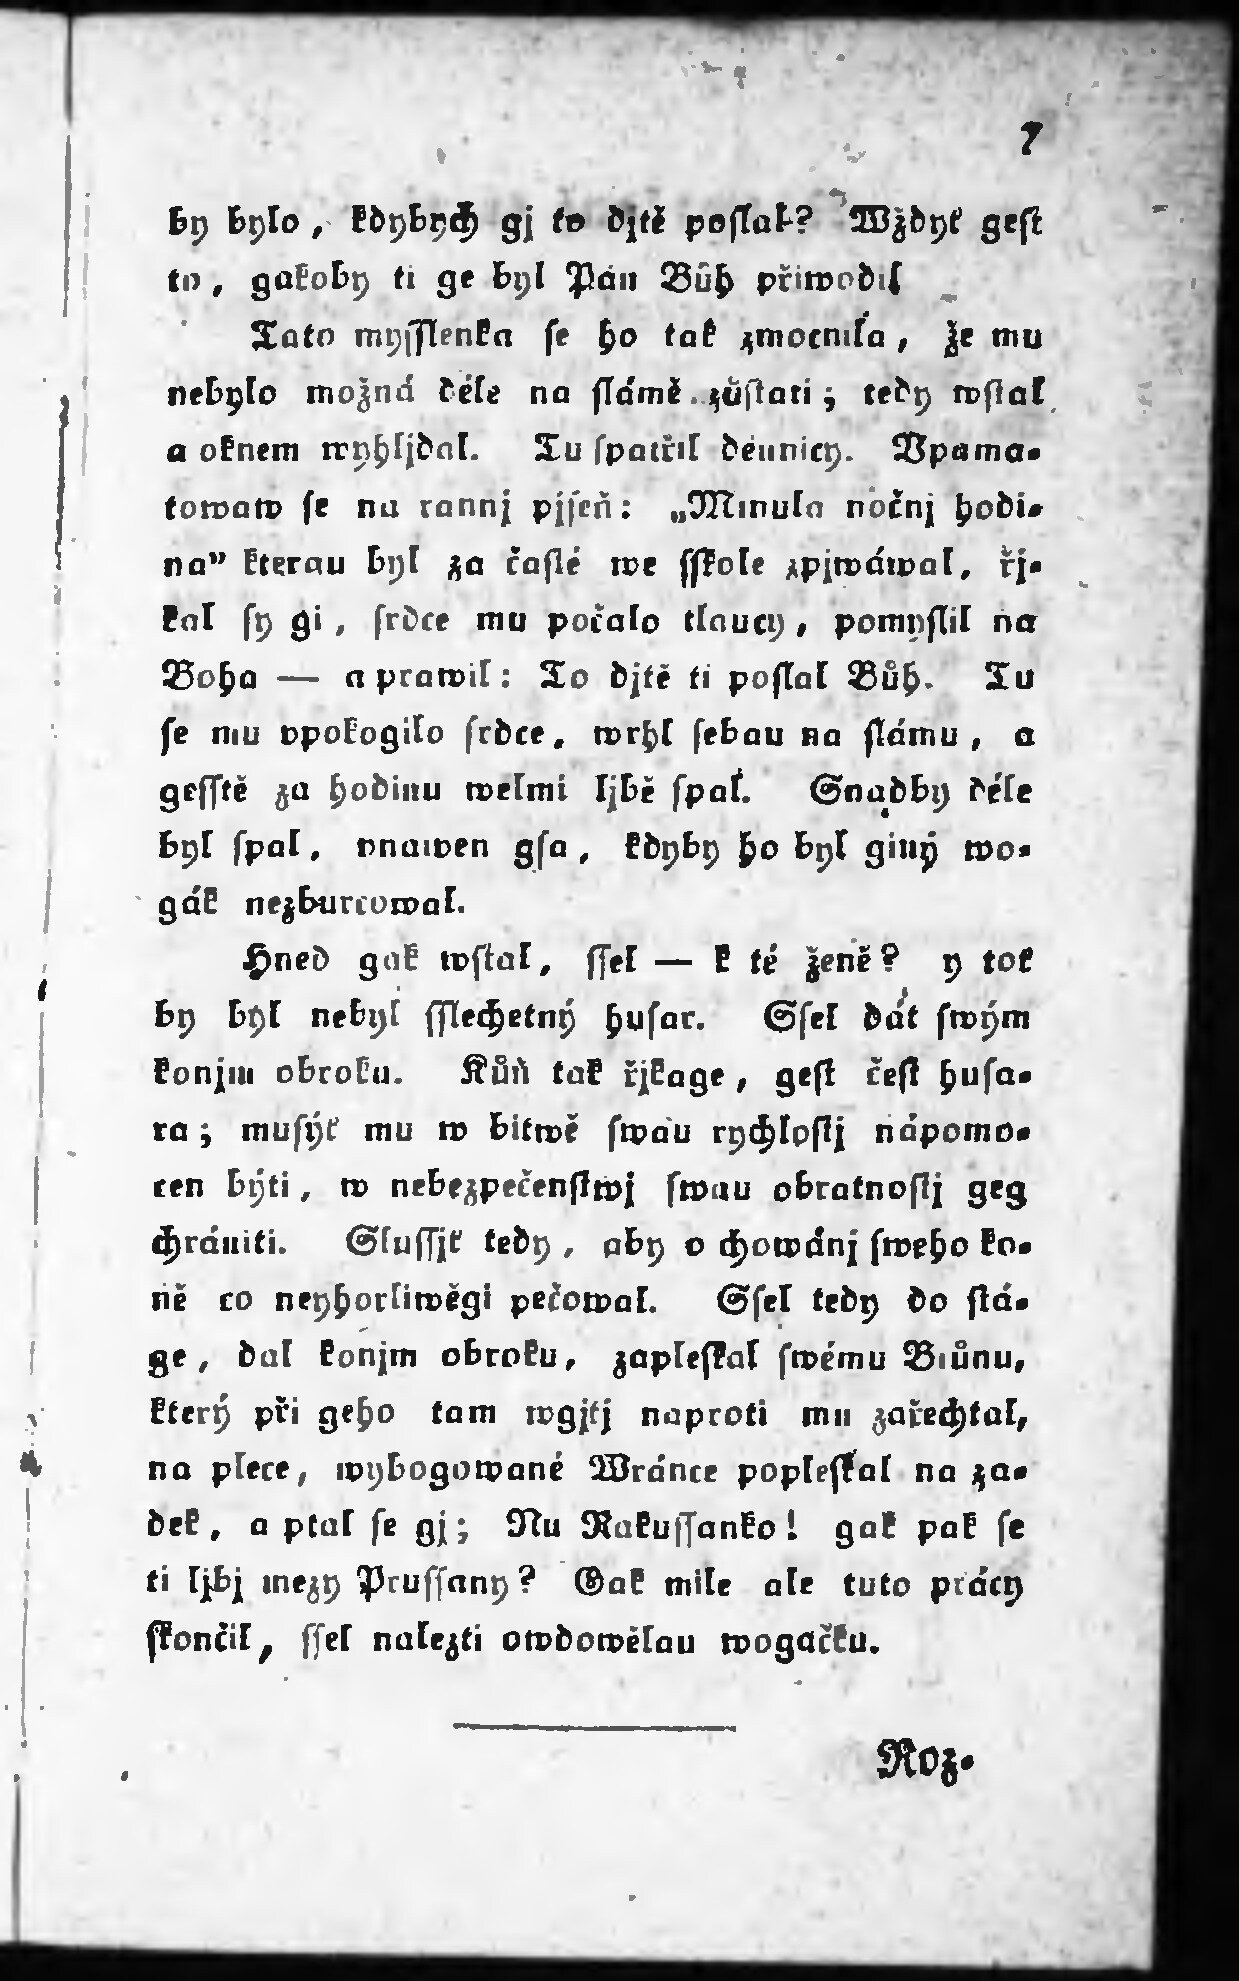 7
by bylo, kdybych gj to djtě poslal? Wždyť gest
to, gakoby ti ge byl Pán Bůh přiwodil
Tato myſſlenka ſe ho tak zmocnila, že mu
nebylo možná déle na ſlámě zůſtati; tedy wſtal
a oknem wyhljdal. Tu ſpatřil dénnicy. Vpama-
towaw ſe na rannj pjſeň: „Minula nočnj hodi-
na” kterau byl za čaſté we ſſkole zpjwáwal, řj-
kal ſy gi, ſrdce mu počalo tlaucy, pomyſlil na
Boha — a prawil: To djtě ti poſlal Bůh. Tu
ſe mu vpokogilo ſrdce, wrhl ſebau na ſlámu, a
geſſtě za hodinu welmi ljbě ſpal. Snadby déle
byl ſpal, vnawen gſa, kdyby ho byl giný wo-
gák nezburcowal.
Hned gak wſtal, ſſel — k té ženě? y tok
by byl nebyl ſſlechetný huſar. Sſel dát ſwým
konjm obroku. Kůň tak řjkage, geſt čeſt huſa-
ra; muſýť mu w bitwě ſwau rychloſtj nápomo-
cen býti, w nebezpečenſtwj ſwau obratnoſtj geg
chrániti. Sluſſjť tedy, aby o chowánj ſweho ko-
ně co neyhorliwěgi pečowal. Sſel tedy do ſtá-
ge, dal konjm obroku, zapleſkal ſwému Biůnu,
který při geho tam wgjtj naproti mu zařechtal,
na plece, wybogowané Wránce popleſkal na za-
dek, a ptal ſe gj; Nu Rakuſſanko! gak pak ſe
ti ljbj mezy Pruſſany? Gak mile ale tuto prácy
ſkončil, ſſel nalezti owdowělau wogačku.
Roz-